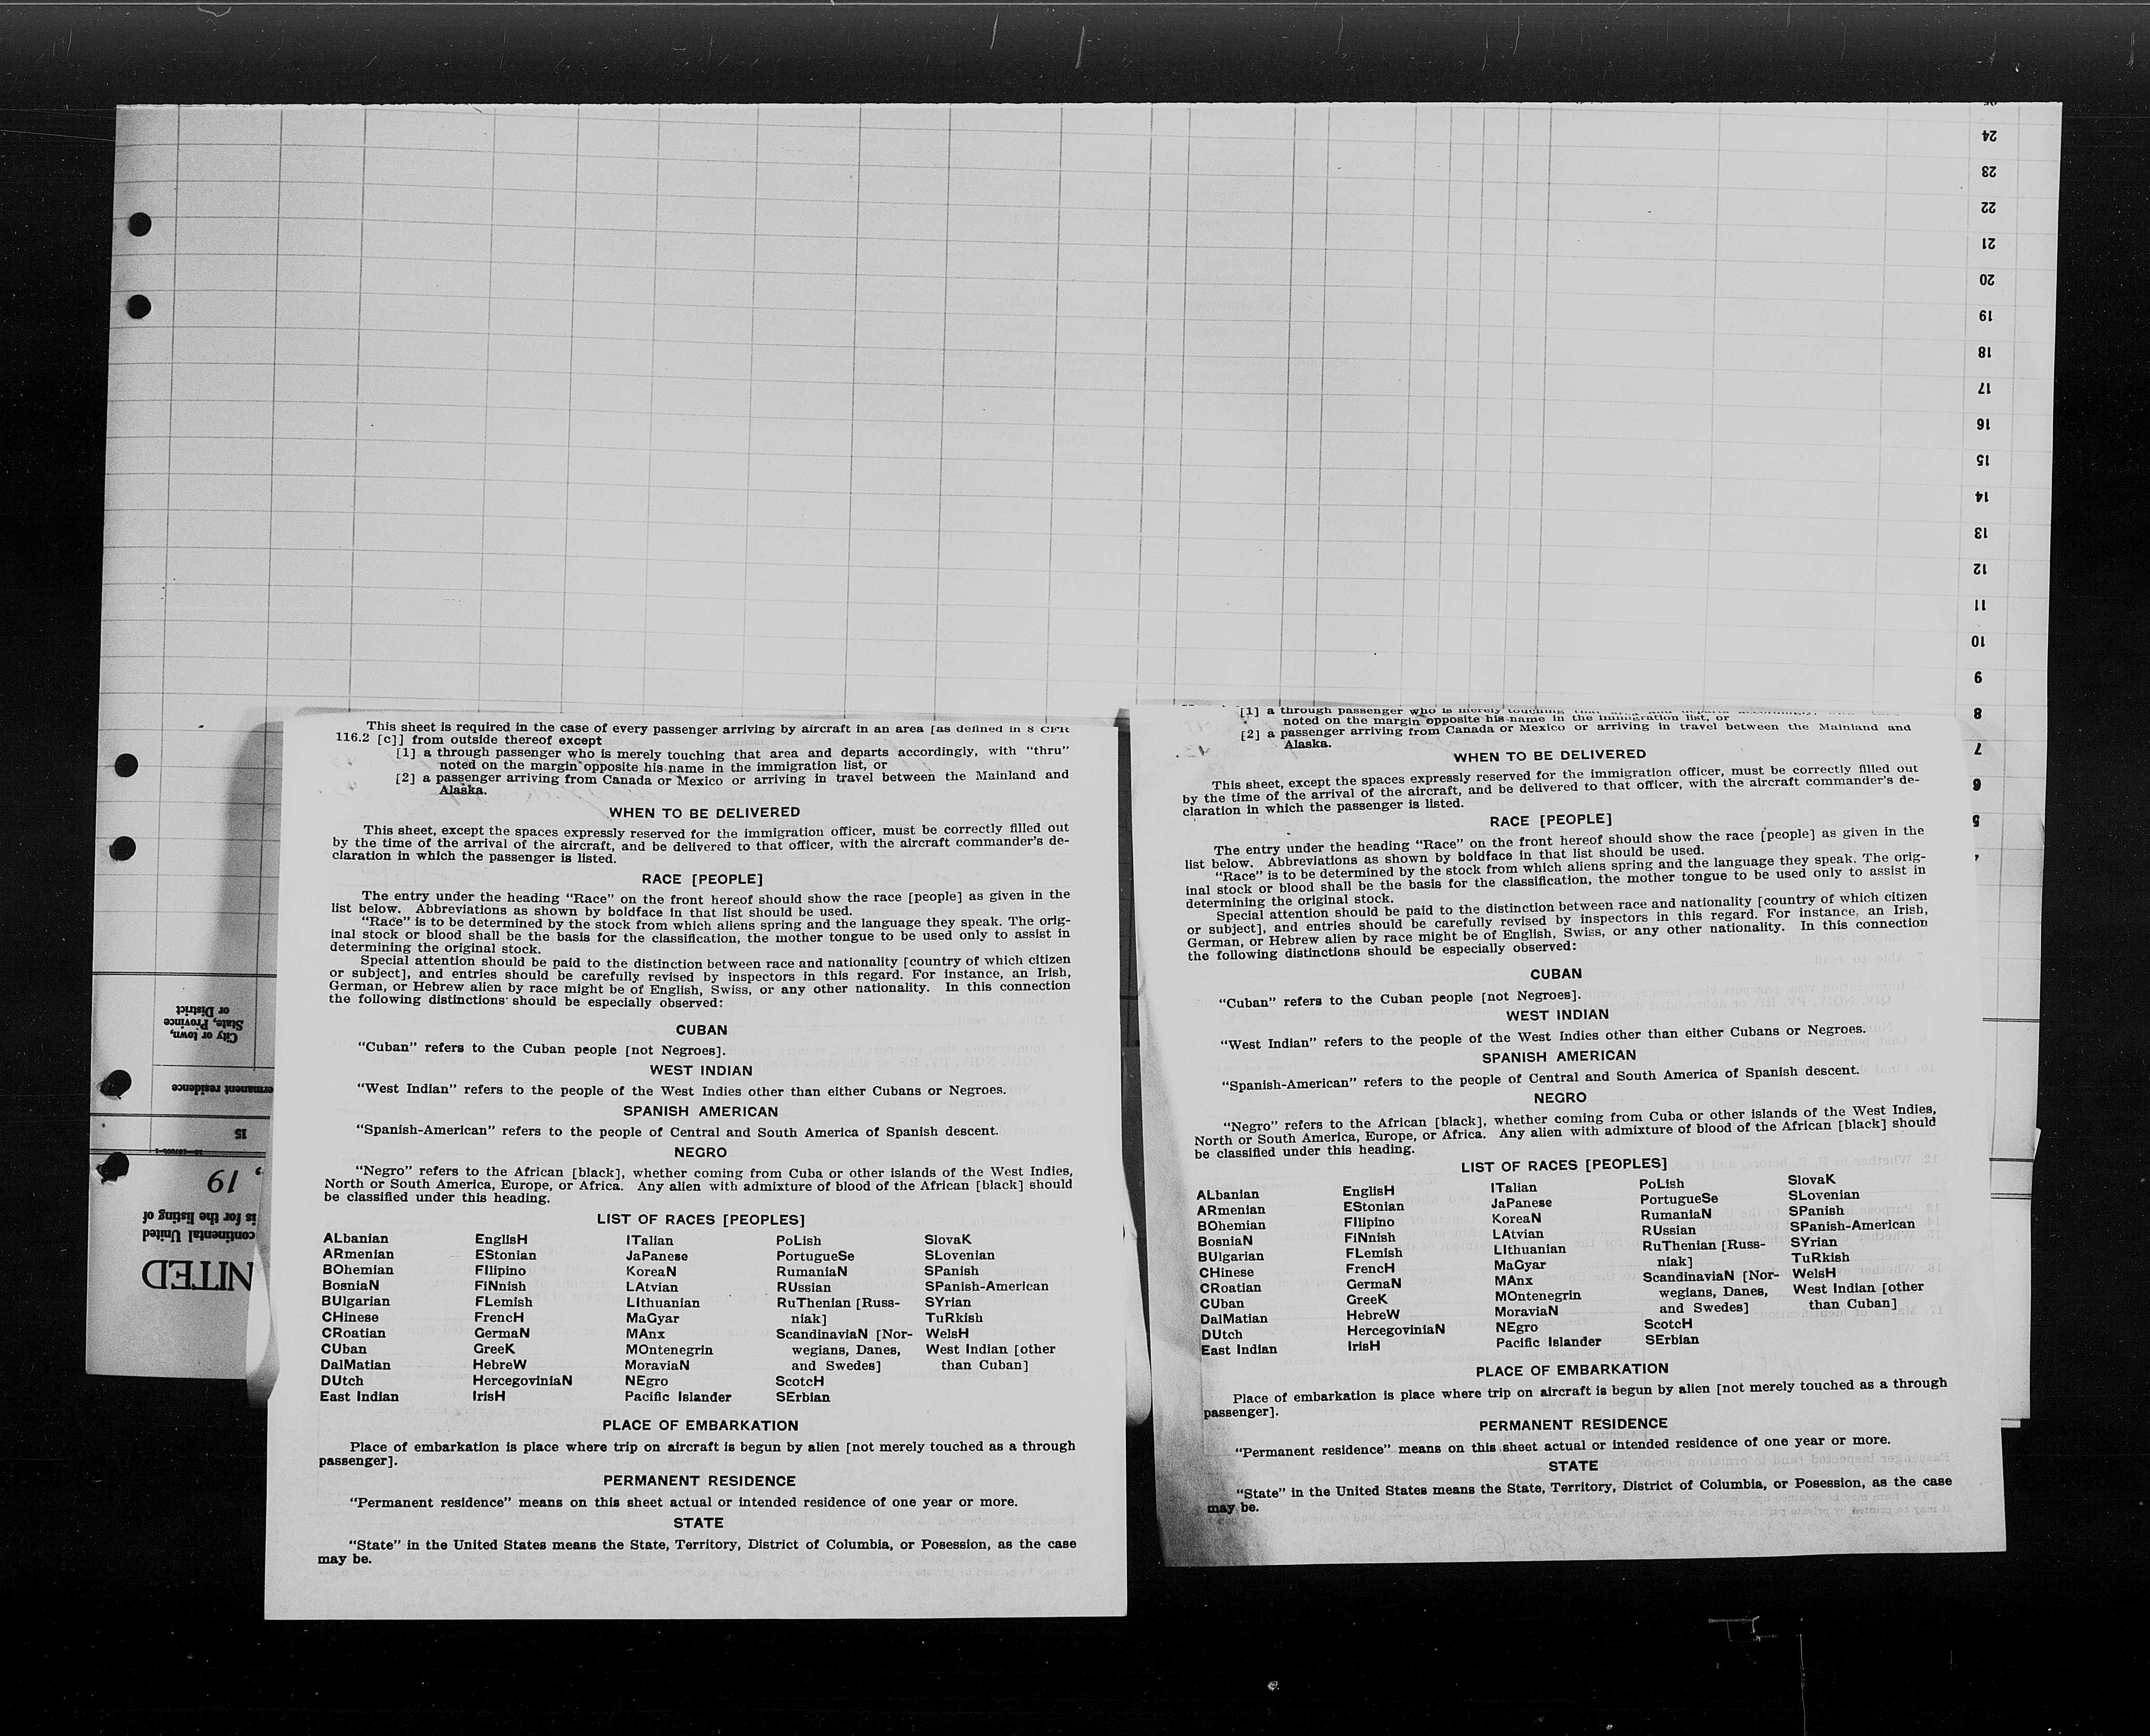 24
23
22
21
20
19
18
17
16
15
14
13
12
11
10
9
8
7
6
5
City or town,
State, Province
or District
ermanent residence
15
, 19
is for the listing of
continental United
NITED
This sheet is required in the case of every passenger arriving by aircraft in an area [as defined in 8 CFR
116.2 [c]] from outside thereof except
[1] a through passenger who is merely touching that area and departs accordingly, with “thru”
noted on the margin opposite his name in the immigration list, or
[2] a passenger arriving from Canada or Mexico or arriving in travel between the Mainland and
Alaska.
WHEN TO BE DELIVERED
This sheet, except the spaces expressly reserved for the immigration officer, must be correctly filled out
by the time of the arrival of the aircraft, and be delivered to that officer, with the aircraft commander's de-
claration in which the passenger is listed.
RACE [PEOPLE]
The entry under the heading “Race” on the front hereof should show the race [people] as given in the
list below. Abbreviations as shown by boldface in that list should be used.
“Race” is to be determined by the stock from which aliens spring and the language they speak. The orig-
inal stock or blood shall be the basis for the classification, the mother tongue to be used only to assist in
determining the original stock.
Special attention should be paid to the distinction between race and nationality [country of which citizen
or subject], and entries should be carefully revised by inspectors in this regard. For instance, an Irish,
German, or Hebrew alien by race might be of English, Swiss, or any other nationality. In this connection
the following distinctions should be especially observed:
CUBAN
“Cuban” refers to the Cuban people [not Negroes].
WEST INDIAN
“West Indian” refers to the people of the West Indies other than either Cubans or Negroes.
SPANISH AMERICAN
“Spanish-American” refers to the people of Central and South America of Spanish descent.
NEGRO
“Negro” refers to the African [black], whether coming from Cuba or other islands of the West Indies,
North or South America, Europe, or Africa. Any alien with admixture of blood of the African [black] should
be classified under this heading.
LIST OF RACES [PEOPLES]
ALbanian EnglisH ITalian PoLish SlovaK
ARmenian EStonian JaPanese PortugueSe SLovenian
BOhemian FIlipino KoreaN RumaniaN SPanish
BosniaN FiNnish LAtvian RUssian SPanish-American
BUlgarian FLemish LIthuanian RuThenian [Russ- SYrian
CHinese FrencH MaGyar niak] TuRkish
CRoatian GermaN MAnx ScandinaviaN [Nor- WelsH
CUban GreeK MOntenegrin wegians, Danes, West Indian [other
DalMatian HebreW MoraviaN and Swedes] than Cuban]
DUtch HercegoviniaN NEgro ScotcH
East Indian IrisH Pacific Islander SErbian
PLACE OF EMBARKATION
Place of embarkation is place where trip on aircraft is begun by alien [not merely touched as a through
passenger].
PERMANENT RESIDENCE
“Permanent residence” means on this sheet actual or intended residence of one year or more.
STATE
“State” in the United States means the State, Territory, District of Columbia, or Posession, as the case
may be.
[1] a through passenger who is merely touching
noted on the margin opposite his name in the immigration list, or
[2] a passenger arriving from Canada or Mexico or arriving in travel between the Mainland and
Alaska.
WHEN TO BE DELIVERED
This sheet, except the spaces expressly reserved for the immigration officer, must be correctly filled out
by the time of the arrival of the aircraft, and be delivered to that officer, with the aircraft commander's de-
claration in which the passenger is listed.
RACE [PEOPLE]
The entry under the heading “Race” on the front hereof should show the race [people] as given in the
list below. Abbreviations as shown by boldface in that list should be used.
“Race” is to be determined by the stock from which aliens spring and the language they speak. The orig-
inal stock or blood shall be the basis for the classification, the mother tongue to be used only to assist in
determining the original stock.
Special attention should be paid to the distinction between race and nationality [country of which citizen
or subject], and entries should be carefully revised by inspectors in this regard. For instance, an Irish,
German, or Hebrew alien by race might be of English, Swiss, or any other nationality. In this connection
the following distinctions should be especially observed:
CUBAN
“Cuban” refers to the Cuban people [not Negroes].
WEST INDIAN
“West Indian” refers to the people of the West Indies other than either Cubans or Negroes.
SPANISH AMERICAN
“Spanish-American” refers to the people of Central and South America of Spanish descent.
NEGRO
“Negro” refers to the African [black], whether coming from Cuba or other islands of the West Indies,
North or South America, Europe, or Africa. Any alien with admixture of blood of the African [black] should
be classified under this heading.
LIST OF RACES [PEOPLES]
ALbanian EnglisH ITalian PoLish SlovaK
ARmenian EStonian JaPanese PortugueSe SLovenian
BOhemian FIlipino KoreaN RumaniaN SPanish
BosniaN FiNnish LAtvian RUssian SPanish-American
BUlgarian FLemish LIthuanian RuThenian [Russ- SYrian
CHinese FrencH MaGyar niak] TuRkish
CRoatian GermaN MAnx ScandinaviaN [Nor- WelsH
CUban GreeK MOntenegrin wegians, Danes, West Indian [other
DalMatian HebreW MoraviaN and Swedes] than Cuban]
DUtch HercegoviniaN NEgro ScotcH
East Indian IrisH Pacific Islander SErbian
PLACE OF EMBARKATION
Place of embarkation is place where trip on aircraft is begun by alien [not merely touched as a through
passenger].
PERMANENT RESIDENCE
“Permanent residence” means on this sheet actual or intended residence of one year or more.
STATE
“State” in the United States means the State, Territory, District of Columbia, or Posession, as the case
may be.